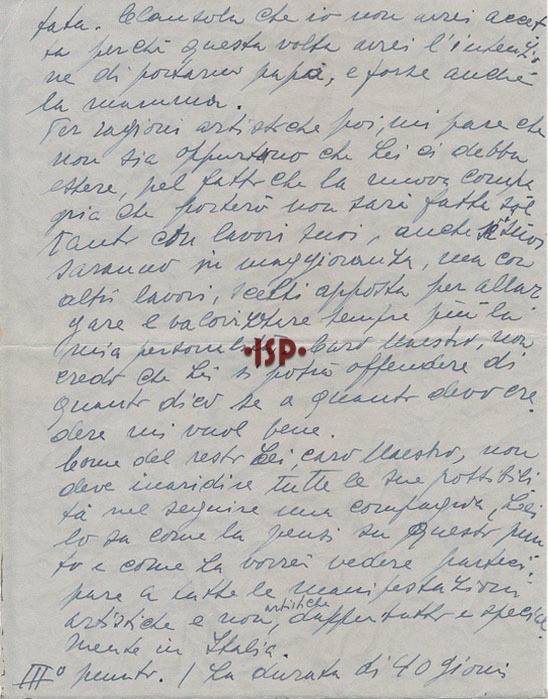 tata. Clausola che io non avrei accet
ta perchè questa volta avrei l'intenzio
ne di portarmi papà, e forse anche
la mamma.
Per ragioni artistiche poi, mi pare che
non sia opportuno che Lei ci debba
essere, pel fatto che la nuova compa
gnia che porterò non sarà fatta sol
tanto con lavori suoi, anche se i suoi
saranno in maggioranza, ma con
altri lavori, scelti apposta per allar
gare e valorizzare sempre più la
mia personalità. Caro Maestro, non
credo che Lei si potrà offendere di
quanto dico se a quanto devo cre
dere mi vuol bene.
Come del resto Lei, caro Maestro, non
deve inaridire tutte le sue possibili
tà nel seguire una compagnia, Lei
lo sa come la pensi su questo pun
to e come La vorrei vedere parteci
pare a tutte le manifestazioni
artistiche e non artistiche, dappertutto e special
mente in Italia.
III° punto. / La durata di 40 giorni
·ISP·